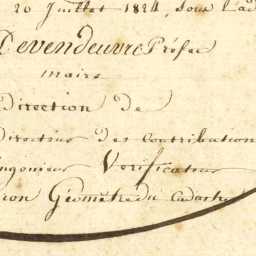 20 Juillet 1824, sous l'ad
Devendeuvre Préfec
maire
direction de
directeur des contribution
ingénieur Vérificateur
ion Géomètre du Cadastre